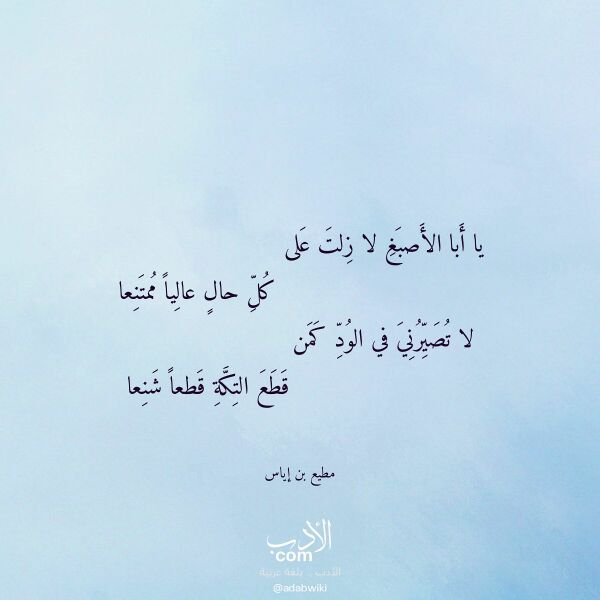 يا أَبا الأَصبَغِ لا زِلتَ عَلى
كُلِّ حالٍ عالِياً مُمتَنِعا
لا تُصَيِّرُنِيَ في الوُدِّ كَمَن
قَطَعَ التِكَّةِ قَطعاً شَنِعا
مطيع بن إياس
الأدب
com
الأدب .. بلغة عربية
@adabwiki